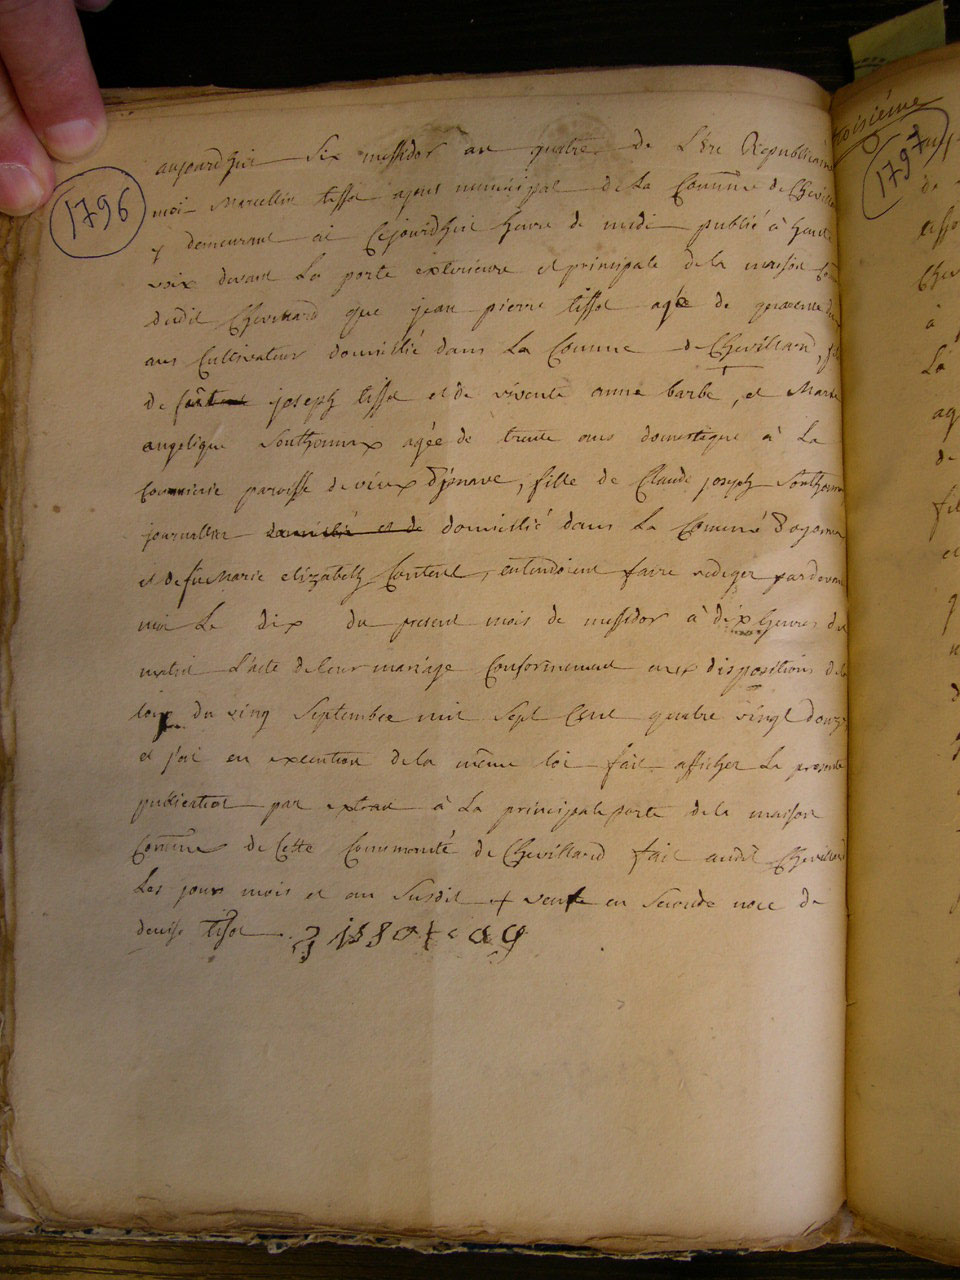 1796
aujourdhui six messidor an quatre de L'ère Republicaine
moi Marcellin tissot agent municipal de La Comune de Chevillard
y demeurant ai Cejourdhui heure de midi publié à haute
voix devant La porte exterieure et principale de la maison
dudit Chevillard que jean pierre tissot agé de quarente
ans Cultivateur domicilié dans La Comune de Chevillard, fils
de joseph tissot et de vivente anne barbe, et Marie
angelique Southonnax agée de trente ans domestique à La
paroisse de vieux D'jsenave, fille de Claude joseph Southonnax
journallier domicilié et de domicilié dans La Comune
et de fue Marie elizabeth Contenet, entendoient faire rediger pardevant
moi Le dix du present mois de messidor à dix heures du
matin L'acte de leur mariage Conformement aux dispositions de la
loix du ving Septembre mil Sept Cent quatre vingt douze
et j'ai en execution de la même loi fait afficher La presente
publication par extrait à La principale porte de la maison
Comune de Cette Communeté de Chevillard fait audit Chevillard
Les jours mois et an Susdit + vente en Seconde noce de
denise tissot . tissot ag
troisième
1797